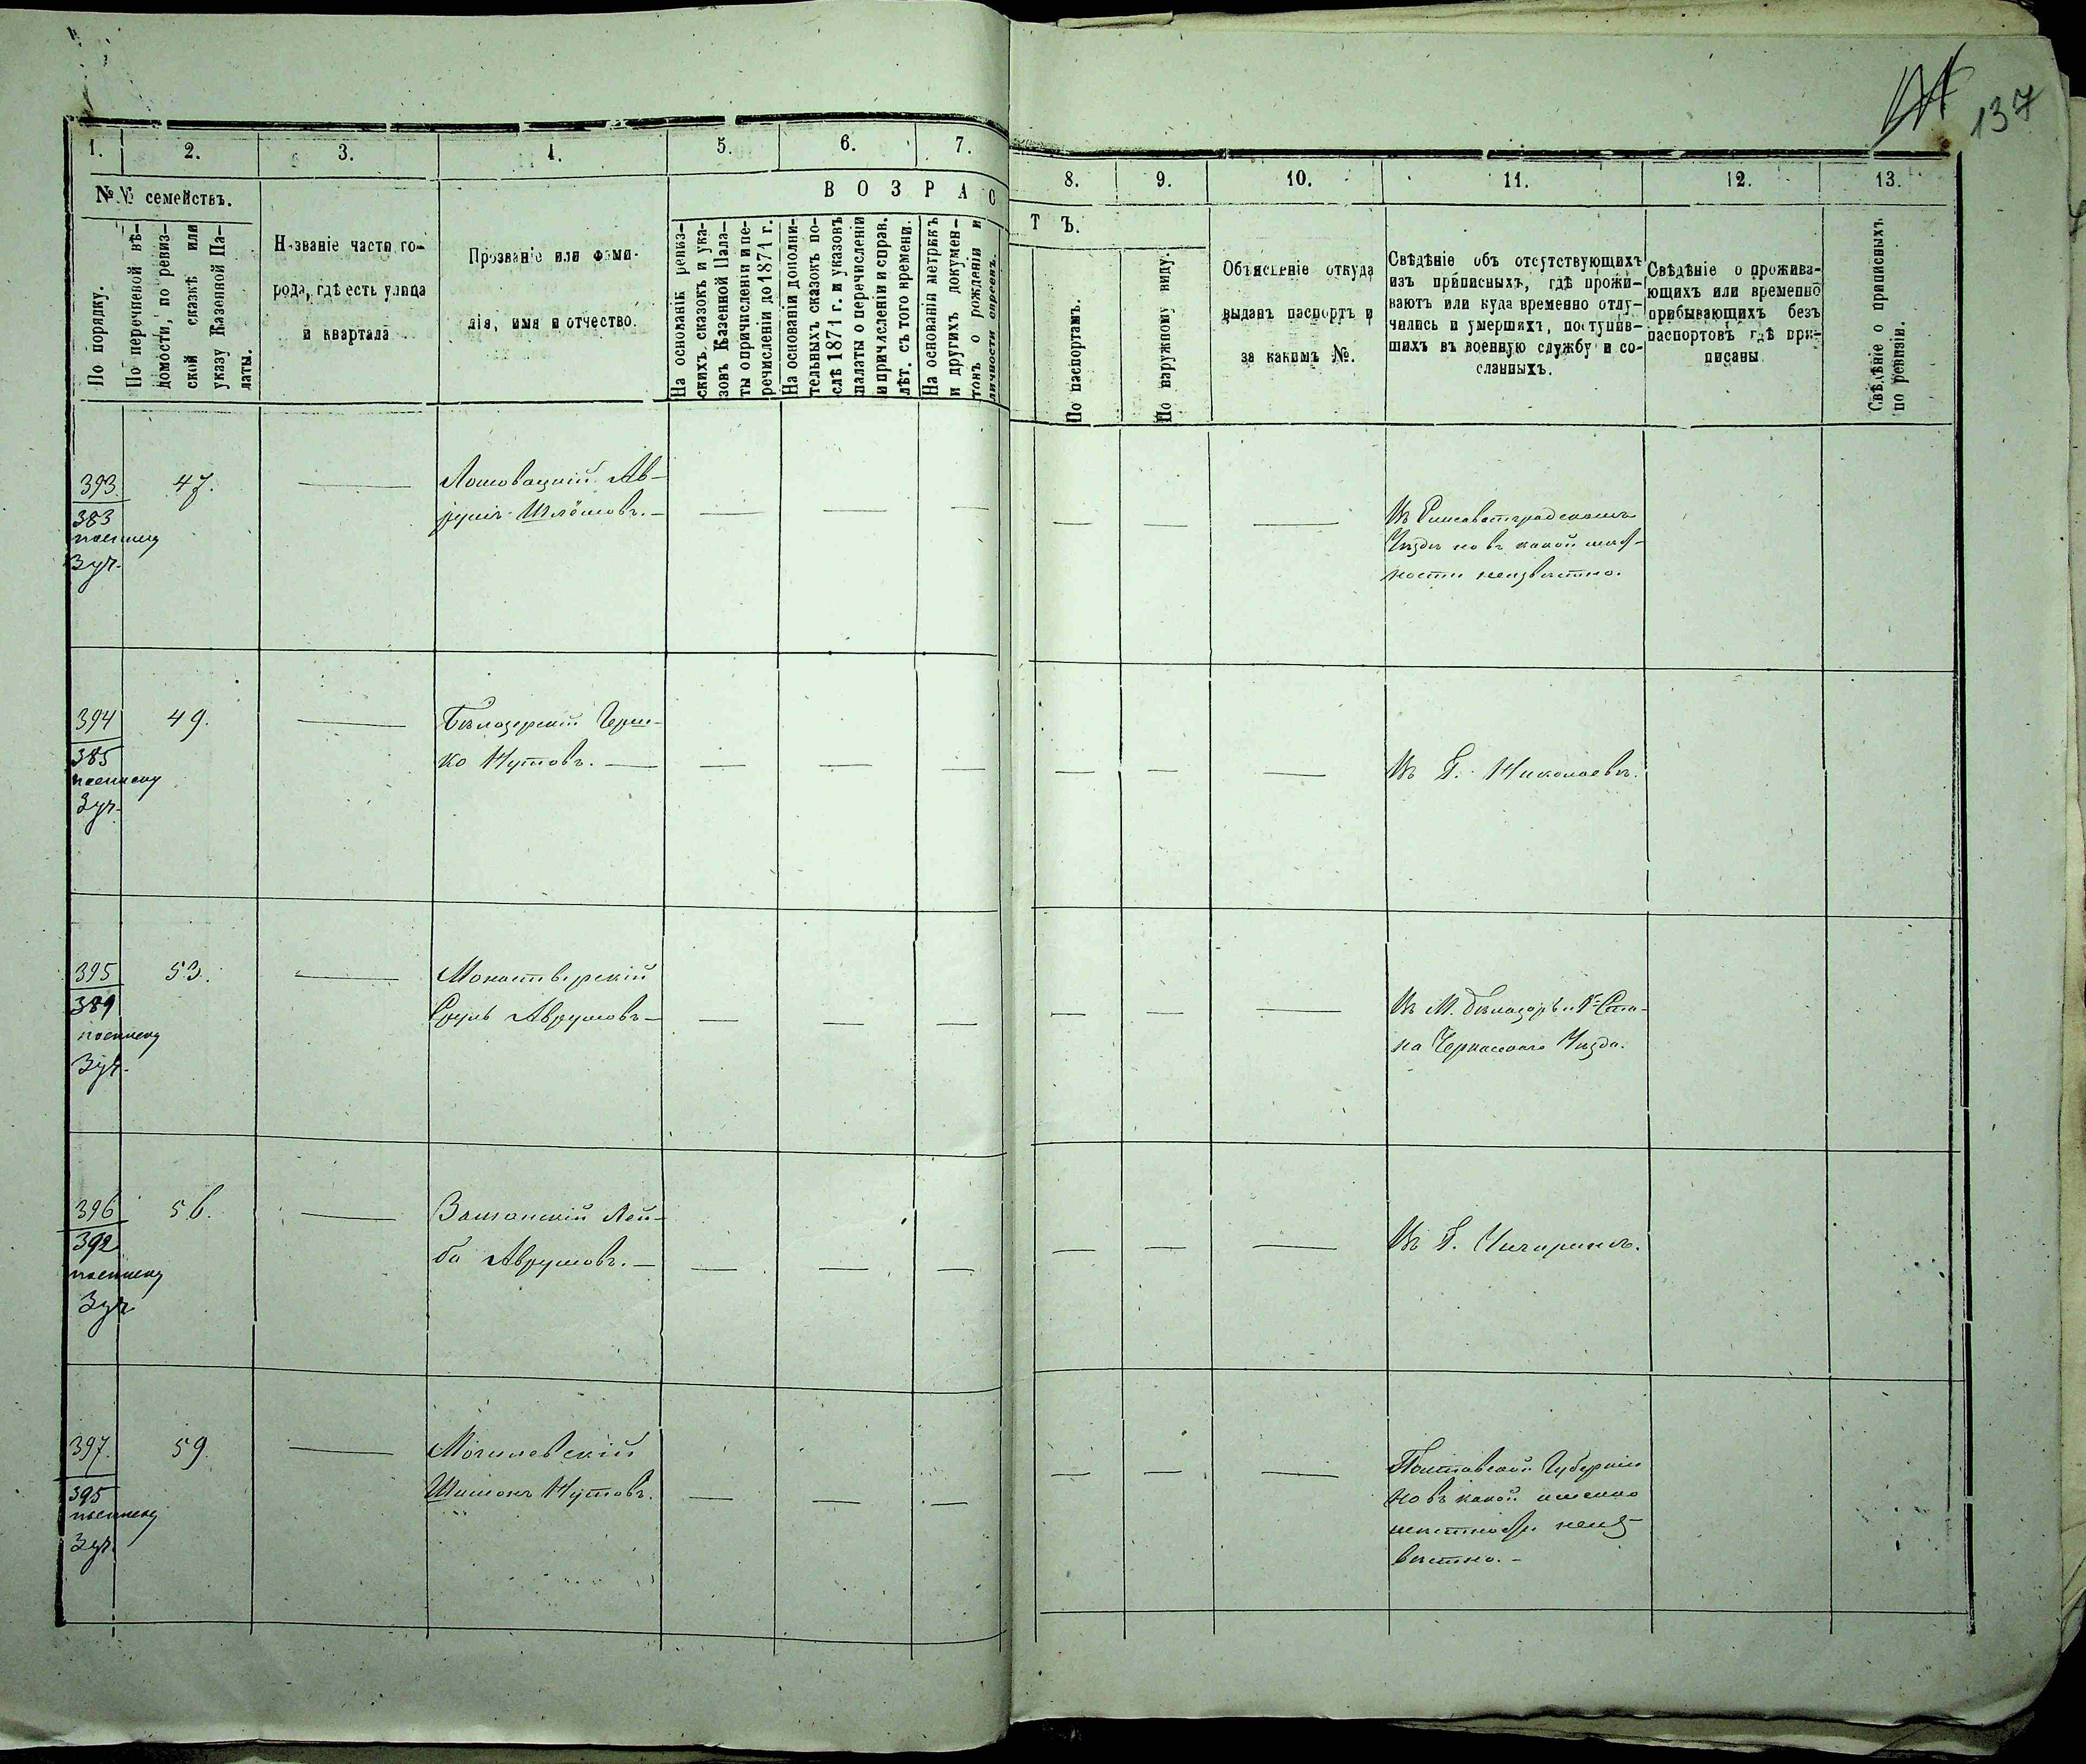 137
1. 2. 3. 4. 5. 6. 7. 8. 9. 10. 11. 12. 13.
№№ семействъ.
По порядку.
По перечневой вѣ-
домости, по ревиз-
ской сказкѣ или
указу Казенной Па-
латы.
Названіе части го-
рода, гдѣ есть улица
и квартала
Прозваніе или фами-
лія, имя и отчество.
ВОЗРАСТЪ.
На основаніи ревиз-
скихъ сказокъ и ука-
зовъ Казенной Пала-
ты о причисленіи и пе-
речисленіи до 1871 г.
На основаніи дополни-
тельныхъ сказокъ по-
слѣ 1871 г. и указовъ
палаты о перечисленіи
и причисленіи и справ.
лѣт. съ того времени.
На основаніи метрикъ
и другихъ докумен-
товъ о рожденіи и
личности евреевъ.
По паспортамъ.
По наружному виду.
Объясненіе откуда
выданъ паспортъ и
за какимъ №.
Свѣдѣніе объ отсутствующихъ
изъ приписныхъ, гдѣ прожи-
ваютъ или куда временно отлу-
чились и умершихъ, поступив-
шихъ въ военную службу и со-
сланныхъ.
Свѣдѣніе о прожива-
ющихъ или временно
прибывающихъ безъ
паспортовъ гдѣ при-
писаны.
Свѣдѣніе о приписныхъ
по ревизіи.
393 47. — Ав-
383 Шлёмовъ. — — — — — — — Въ Елисаветградскомъ
Уѣздѣ но въ какой мѣст-
3 уч. ности неизвѣстно.
394 49. — Бѣлозерскій Герш-
385 ко Нутовъ. — — — — — — — Въ Г. Николаевѣ.
3 уч.
395 53. — Монастырскій
389 Сруль Аврумовъ — — — — — — — Въ М. Ста-
на Черкаскаго Уѣзда.
3 уч.
396 56. — Лей-
392 ба Аврумовъ. — — — — — — — Въ Г. Чигиринѣ.
3 уч.
397. 59. — Могилевскій
395 Шимонъ Нутовъ. — — — — — — Полтавской Губерніи
но въ какой именно
3 уч. мѣстности неиз-
вѣстно. —